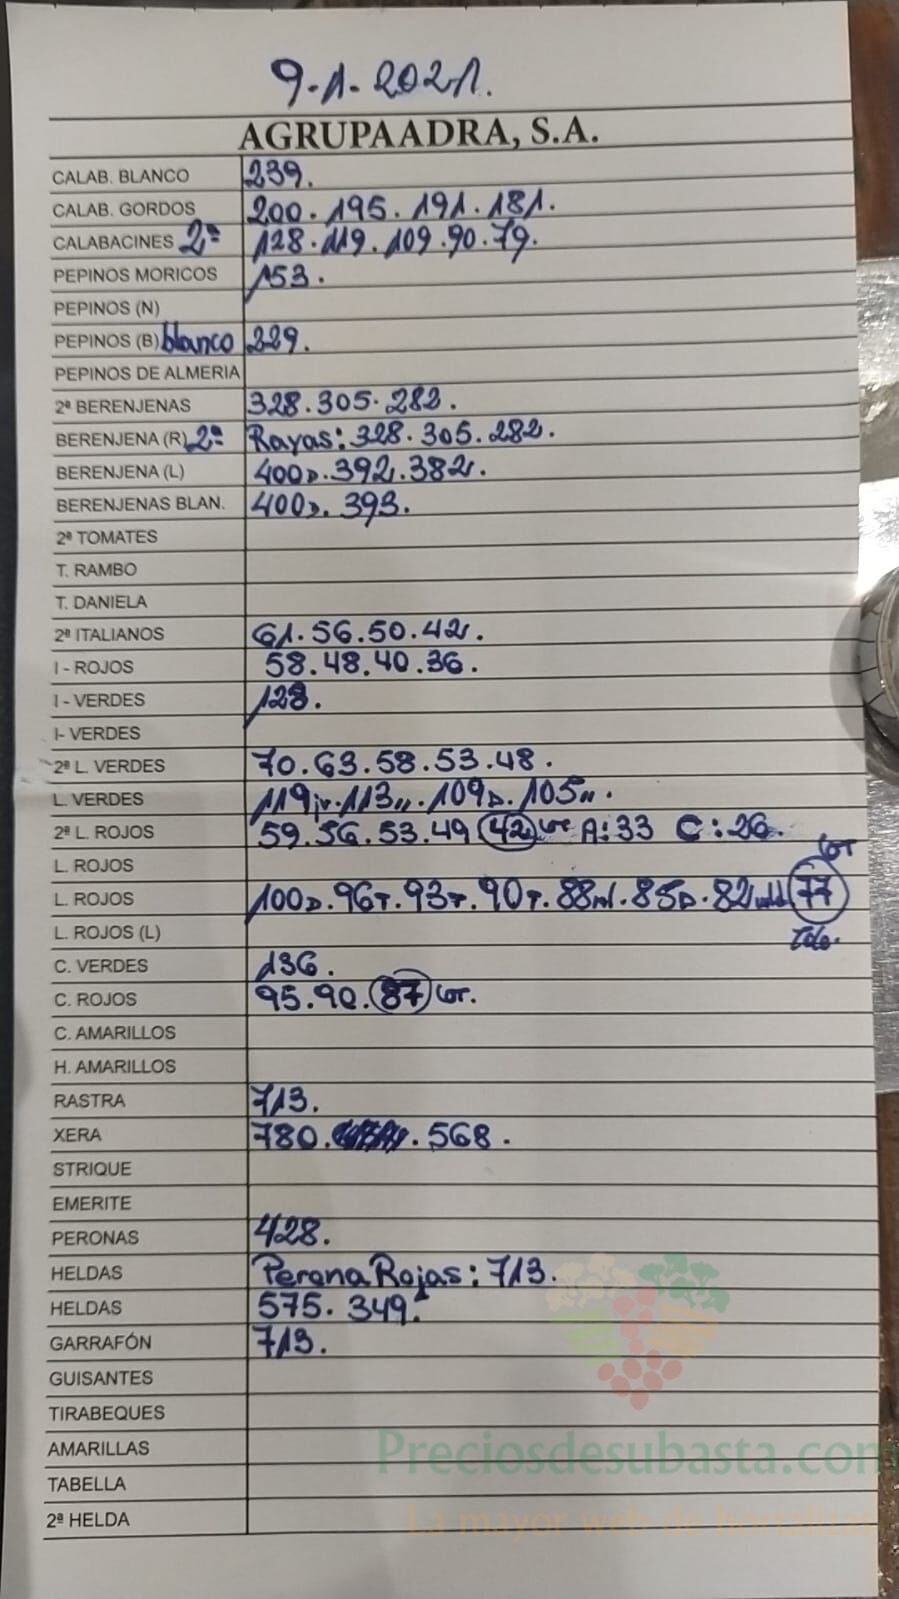 9-1-2021.
AGRUPAADRA, S.A.
CALAB. BLANCO 239.
CALAB. GORDOS 200. 195. 191. 181.
CALABACINES 2ª 128. 119. 109. 90. 79.
PEPINOS MORICOS 153.
PEPINOS (N)
PEPINOS (B) blanco 229.
PEPINOS DE ALMERIA
2ª BERENJENAS 328. 305. 282.
BERENJENA (R) 2ª Rayas: 328. 305. 282.
BERENJENA (L) 400D. 392. 382.
BERENJENAS BLAN. 400D. 393.
2ª TOMATES
T. RAMBO
T. DANIELA
2ª ITALIANOS 61. 56. 50. 42.
I - ROJOS 58. 48. 40. 36.
I - VERDES 128.
I- VERDES
2ª L. VERDES 70. 63. 58. 53. 48.
L. VERDES 119 113 „. 109D. 105 „.
2ª L. ROJOS 59. 56. 53. 49 42 A: 33 C: 26.
L. ROJOS
L. ROJOS 100D. 96T. 93T. 90T. 88 85D. 82 77
L. ROJOS (L)
C. VERDES 136.
C. ROJOS 95. 90. 87
C. AMARILLOS
H. AMARILLOS
RASTRA 713.
XERA 780. 568.
STRIQUE
EMERITE
PERONAS 428.
HELDAS Perona Rojas: 713.
HELDAS 575. 349.
GARRAFÓN 713.
GUISANTES
TIRABEQUES
AMARILLAS
TABELLA
2ª HELDA
Preciosdesubasta.com
La mayor web de hortalizas